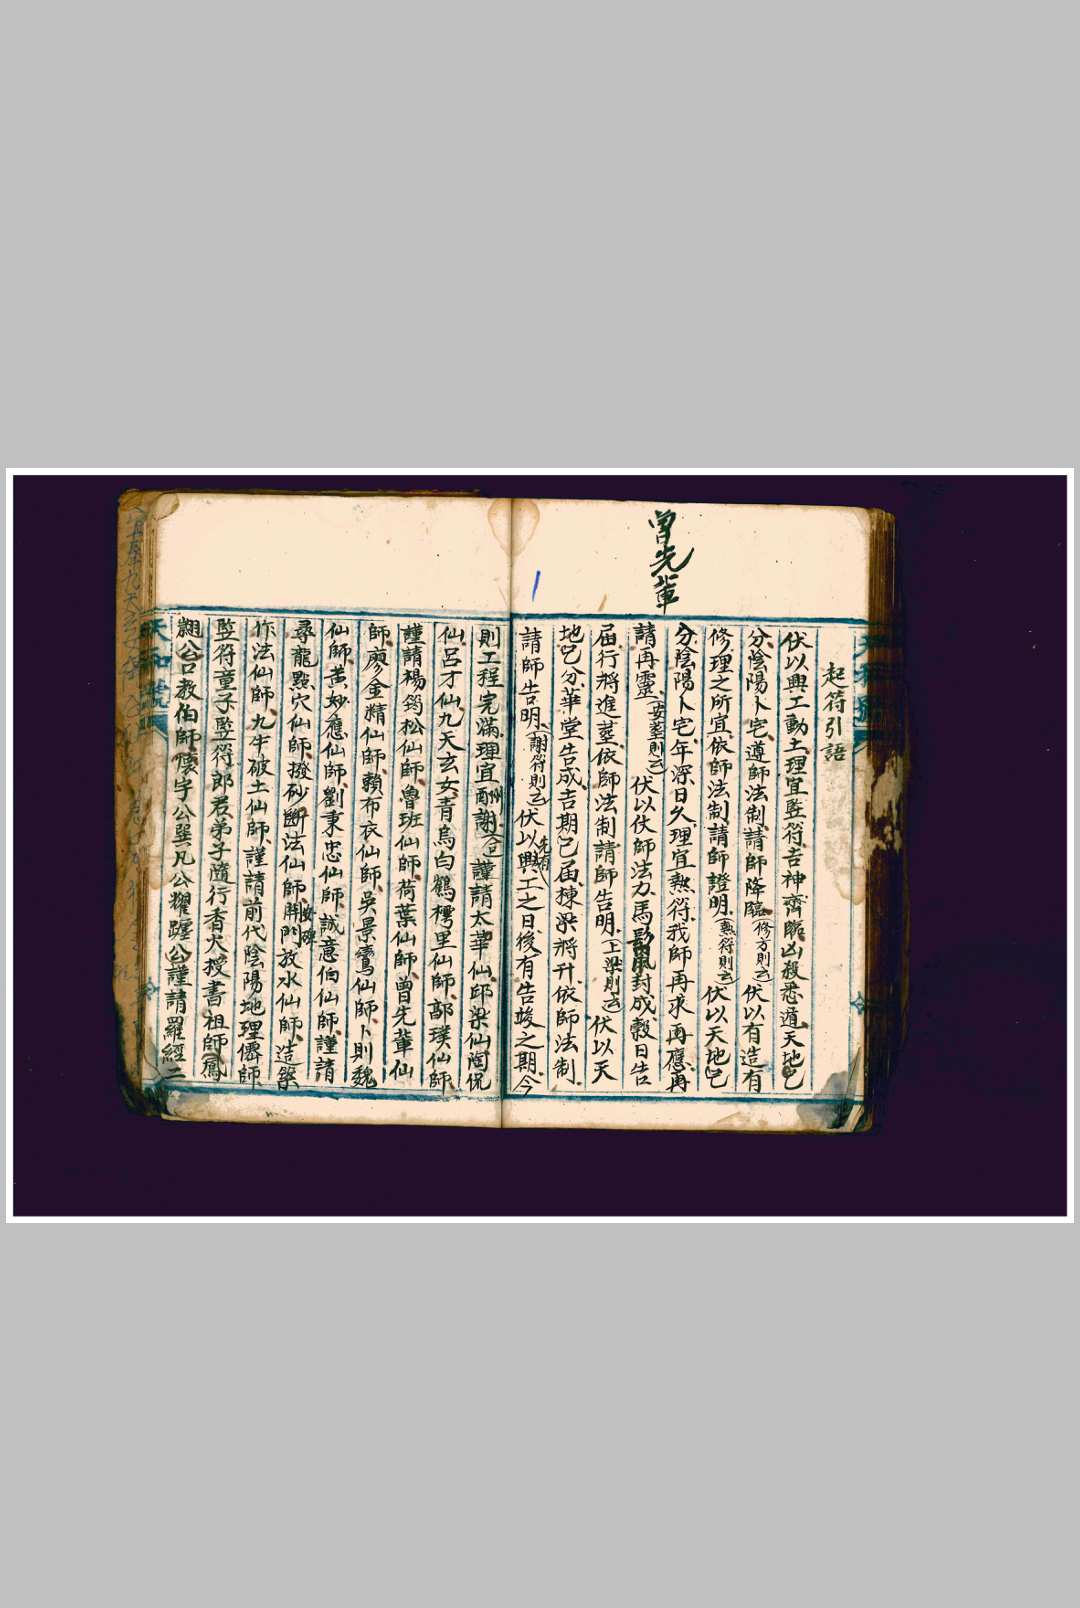 曾先輩
起符引語
伏以興工動土、理宜監符、吉神齊臨、凶殺悉遁、天地已
分、陰陽卜宅、遵師法制、請師降臨、(修方則云)伏以有造有
修、理之所宜、依師法制、請師證明、(熱符則云)伏以天地已
分、陰陽卜宅、年深日久、理宜熱符、我師再求再應、再
請再靈、(安塟則云)伏以伏師法力、馬鬛封成、穀日告
届、行將進塟、依師法制、請師告明、(上梁則云)伏以天
地已分、華堂告成、吉期已届、棟梁將升、依師法制、
請師告明、(謝符則云)伏以先有興工之日、後有告竣之期、今
則工程完滿、理宜酧謝、(合同)謹請太華仙、邱梁仙、陶侃
仙、呂才仙、九天玄女、青烏白鶴、樗里仙師、郭璞仙師、
謹請楊筠松仙師、魯班仙師、荷葉仙師、曾先輩仙
師、廖金精仙師、賴布衣仙師、吳景鸞仙師、卜則魏
仙師、黃妙應仙師、劉秉忠仙師、誠意伯仙師、謹請
尋龍點穴仙師、撥砂斷法仙師、開門放水仙師、造葬
安碑
作法仙師、九牛破土仙師、謹請前代陰陽地理儒師、
監符童子、監符郎君、弟子隨行香火、授書祖師、鳳
翹公、口教伯師懷宇公、巽凡公、耀躔公、謹請羅經二
天和號